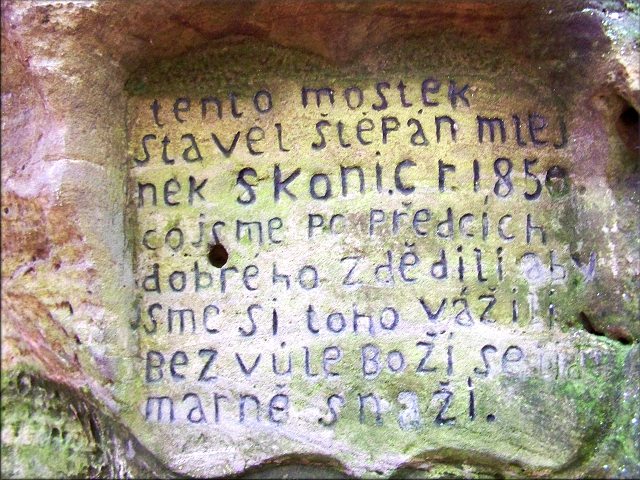 tento mostek
stavel štěpán mlej
nek skoni.c r.1850.
cojsme po předcích
dobrého zdědili aby
jsme si toho vážili
Bez vůle Boží se
marně snaží.